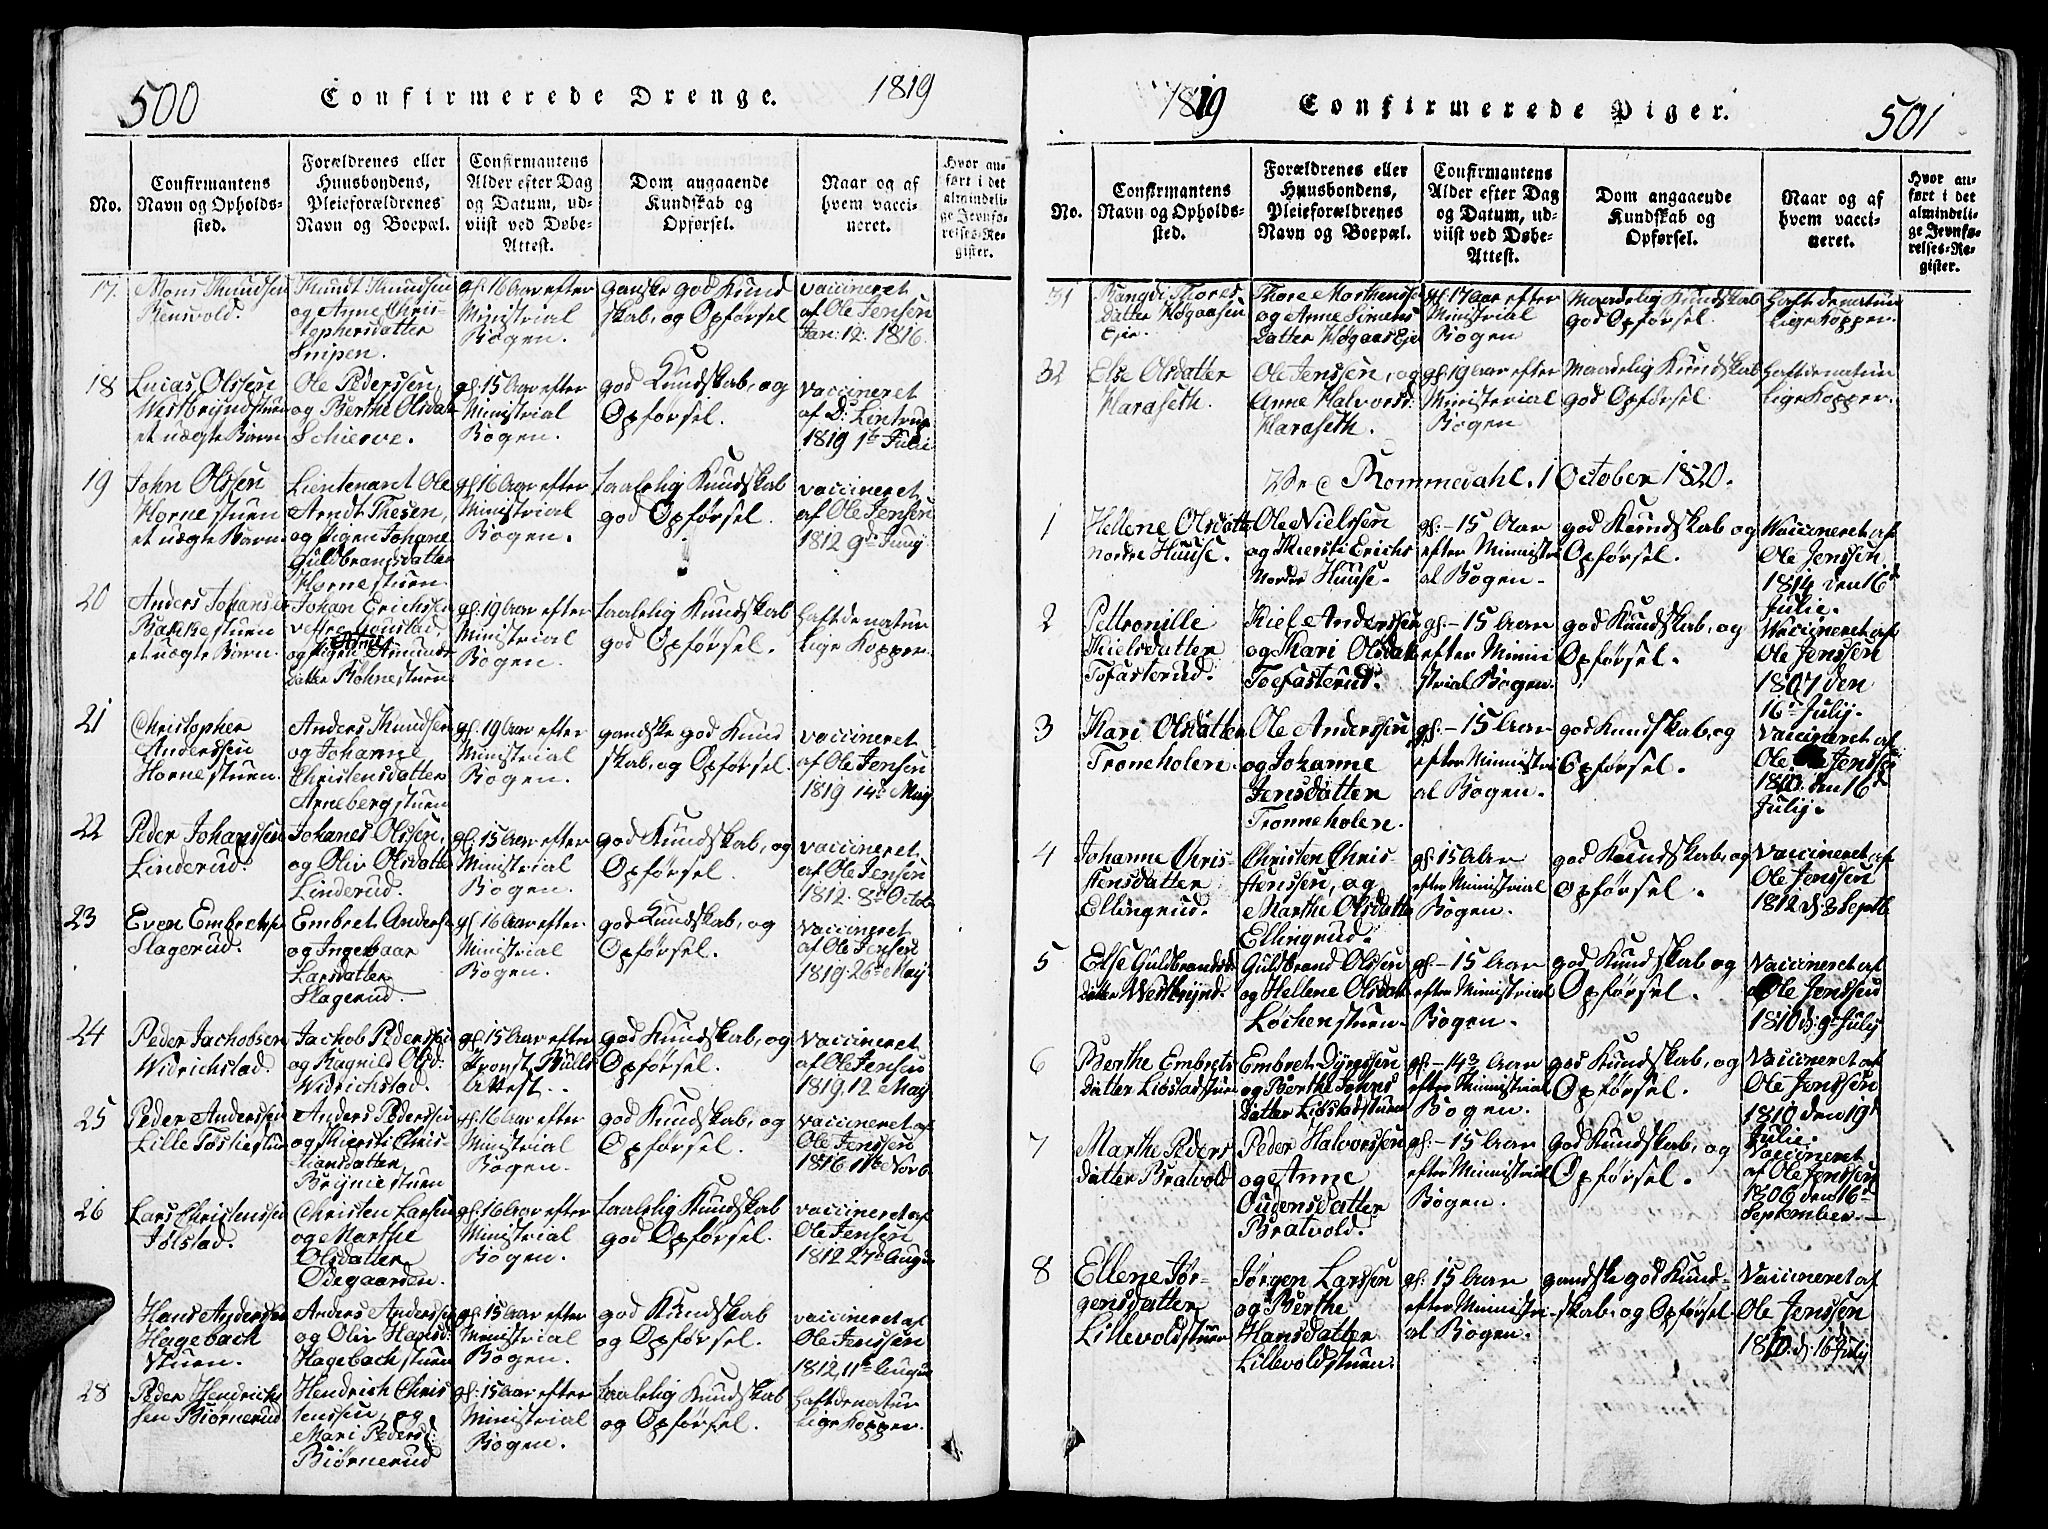 500 Confirmerede Drenge. 1819
No.
Confirmantens
Navn og Opholds-
sted.
Forældrenes eller
Huusbondens,
Pleieforældrenes
Navn og Boepæl.
Confirmantens
Alder efter Dag
og Datum, ud-
viist ved Døbe-
Attest.
Dom angaaende
Kundskab og
Opførsel.
Naar og af
hvem vacci-
neret.
Hvor an-
ført i det
almindeli-
ge Jevnfø-
relses-Re-
gister.
17.
Mons Knudsen
Renvold.
Knudt Knudsen
og Anne Chris-
tophersdatter
Snipen.
gl. 16 Aar efter
Ministrial
Bogen.
ganske god Kund
skab, og Opførsel
vaccineret
af Ole Jensen
Jan: 12. 1816.
18
Lucas Olssen
Westbryndstuen
et uægte Barn
Ole Pederssen,
og Berthe Olsdat
Schierve.
gl: 15 Aar efter
Ministrial
Bogen.
god Kundskab, og
Opførsel.
vaccineret
af D: Lintrup
1819 1te Julii
19
John Olssen
Hornestuen
et uægte Barn
Lieutenant Ole
Arndt Thesen,
og Pigen Johane
Guldbrandsdatter
Hornestuen.
gl. 16 Aar efter
Ministrial
Bogen.
taalelig Kundskab
god Opførsel.
vaccineret
af Ole Jensen
1812 9de Junij
20
Anders Johansen
Bakkestuen
et uægte Barn.
Johan Erichsen
vestre Gaustad,
og Pigen Amunds
datter Bøhnestuen.
gl: 19 Aar efter
Ministrial
Bogen.
taalelig Kundskab
god Opførsel.
haft de natur
lige Kopper.
21
Christopher
Anderssen
Hornestuen.
Anders Knudsen
og Johanne
Christensdatter
Arnebergstuen
gl. 19 Aar efter
Ministrial
Bogen.
gandske god Kund
skab, og Opførsel.
vaccineret
af Ole Jensen
1819 14de May
22
Peder Johanssen
Linderud.
Johanes Olssen,
og Oliv Olsdatte
Linderud.
gl. 15 Aar efter
Ministrial
Bogen.
god Kundskab, og
Opførsel.
vaccineret
af Ole Jensen
1812. 8de Octob
23
Even Embretse
Slagerud.
Embret Anderse
og Ingebaar
Larsdatter
Slagerud.
gl 16 Aar efter
Ministrial
Bogen.
god Kundskab, og
Opførsel.
vaccineret
af Ole Jensen
1819. 26de May
24
Peder Jachobsen
Widrichstad.
Jackob Pederssen
og Ragnild Olsd:
Widrichstad.
gl. 15 Aar efter
Provst Bulls
Attest.
god Kundskab, og
Opførsel.
vaccineret
af Ole Jensen
1819, 12 May
25
Peder Anderssen
Lille Toskiestuen
Anders Pederssen
og Kiersti Chris
tiansdatter
Bryniestuen
gl: 16 Aar efter
Ministrial
Bogen.
god Kundskab, og
Opførsel.
vaccineret af
Ole Jenssen
1816 11te Novb
26
Lars Christenssen
Jølstad.
Christen Larsen
og Marthe
Olsdatter
Ødegaarden.
gl: 16 Aar efter
Ministrial
Bogen.
taalelig Kundskab
god Opførsel.
vaccineret af
Ole Jensen
1812 27de Augu
Hans Anderssen
Hagebach
stuen.
Anders Anderssen
og Oliv Hansd:
Hagebachstuen
gl: 15 Aar efter
Ministrial
Bogen.
god Kundskab
og Opførsel.
vaccineret af
Ole Jenssen
1812, 11te Augu
28
Peder Hendrichs
sen Biørnerud
Hendrich Chris
tenssen, og
Mari Pedersd:
Biørnerud
gl: 15 Aar efter
Ministrial
Bogen.
taalelig Kundskab
og Opførsel.
haft de natur
lige Kopper.
1819 Confirmerede Piger. 501
No.
Confirmantens
Navn og Opholds-
sted.
Forældrenes eller
Huusbondens,
Pleieforældrenes
Navn og Boepæl.
Confirmantens
Alder efter Dag
og Datum, ud-
viist ved Døbe-
Attest.
Dom angaaende
Kundskab og
Opførsel.
Naar og af
hvem vacci-
neret.
Hvor an-
ført i det
almindeli-
ge Jevnfø-
relses-Re-
gister.
31
Rangdi Thores
datter Høgaasen
Eje.
Thore Morthenssen
og Anne Simens
datter Høgaas Eje
gl. 17 Aar efter
Ministrial
Bogen
maadelig Kundskab
god Opførsel.
haft de natur
lige Kopper.
32
Else Olsdatter
Haraseth.
Ole Jenssen, og
Anne Halvorsd:
Haraseth.
gl: 19 Aar efter
Ministerial
Bogen
Maadelig Kundskab
god Opførsel.
haft de natur
lige Kopper.
Rommedahl. 1 October 1820.
1
Hellene Olsdatte
nordre Huuse.
Ole Nielssen
og Kiersti Erichs
Nordre Huuse.
gl: - 15 Aar
efter Ministri
al Bogen.
god Kundskab og
Opførsel.
Vaccineret af
Ole Jenssen
1814 den 16de
Julie.
2
Pettronille
Kielsdatter
Tofasterud.
Kiel Anderssen
og Kari Olsdat
Toefasterud.
gl: - 15 Aar
efter Mini
strial Bogen.
god Kundskab, og
Opførsel.
Vaccineret af
Ole Jenssen
1807 den
16de Julij.
3
Kari Olsdatter
Troneholen.
Ole Anderssen
og Johanne
Jensdatter
Tronneholen.
gl: - 15 Aar
efter Ministri
al Bogen.
god Kundskab, og
Opførsel.
Vaccineret af
Ole Jenssen
1810 den 16de
Julij.
4
Johanne Chris-
stensdatter
Ellingrud.
Christen Chris-
stenssen, og
Marthe Olsdatte
Ellingrud.
gl: 15 Aar
efter Ministrial
Bogen.
god Kundskab, og
Opførsel.
Vaccineret af
Ole Jenssen
1812 d: 8 Septb
5
Else Guldbrands
datter Westbrynd.
Guldbrand Olssen
og Hellene Olsdat
Løchenstuen.
gl: - 15 Aar
efter Ministrial
Bogen.
god Kundskab og
Opførsel.
Vaccineret af
Ole Jenssen
1810 d: 9de Julij
6
Berthe Embrets
datter Libstadstuen
Embret Dyressen
og Berthe Johns
datter Libstadstuen
gl: - 14¾ Aar
efter Ministrial
Bogen.
god Kundskab, og
Opførsel.
Vaccineret af
Ole Jenssen
1810 den 19de
Julie.
7
Marthe Peders
datter Bratvold
Peder Halvorssen
og Anne
Oudensdatter
Bratvold.
gl: - 15 Aar
efter Ministrial
Bogen.
god Kundskab, og
Opførsel.
Vaccineret
af Ole Jenssen
1806 den 16de
September.
8
Ellene Jør-
gensdatter
Lillevoldstuen
Jørgen Larssen
og Berthe
Hansdatter
Lillevoldstuen.
gl: 15 Aar
efter Ministri-
al Bogen.
gandske god Kund-
skab, og Opførsel
Vaccineret af
Ole Jenssen
1810. d: 16 Julij